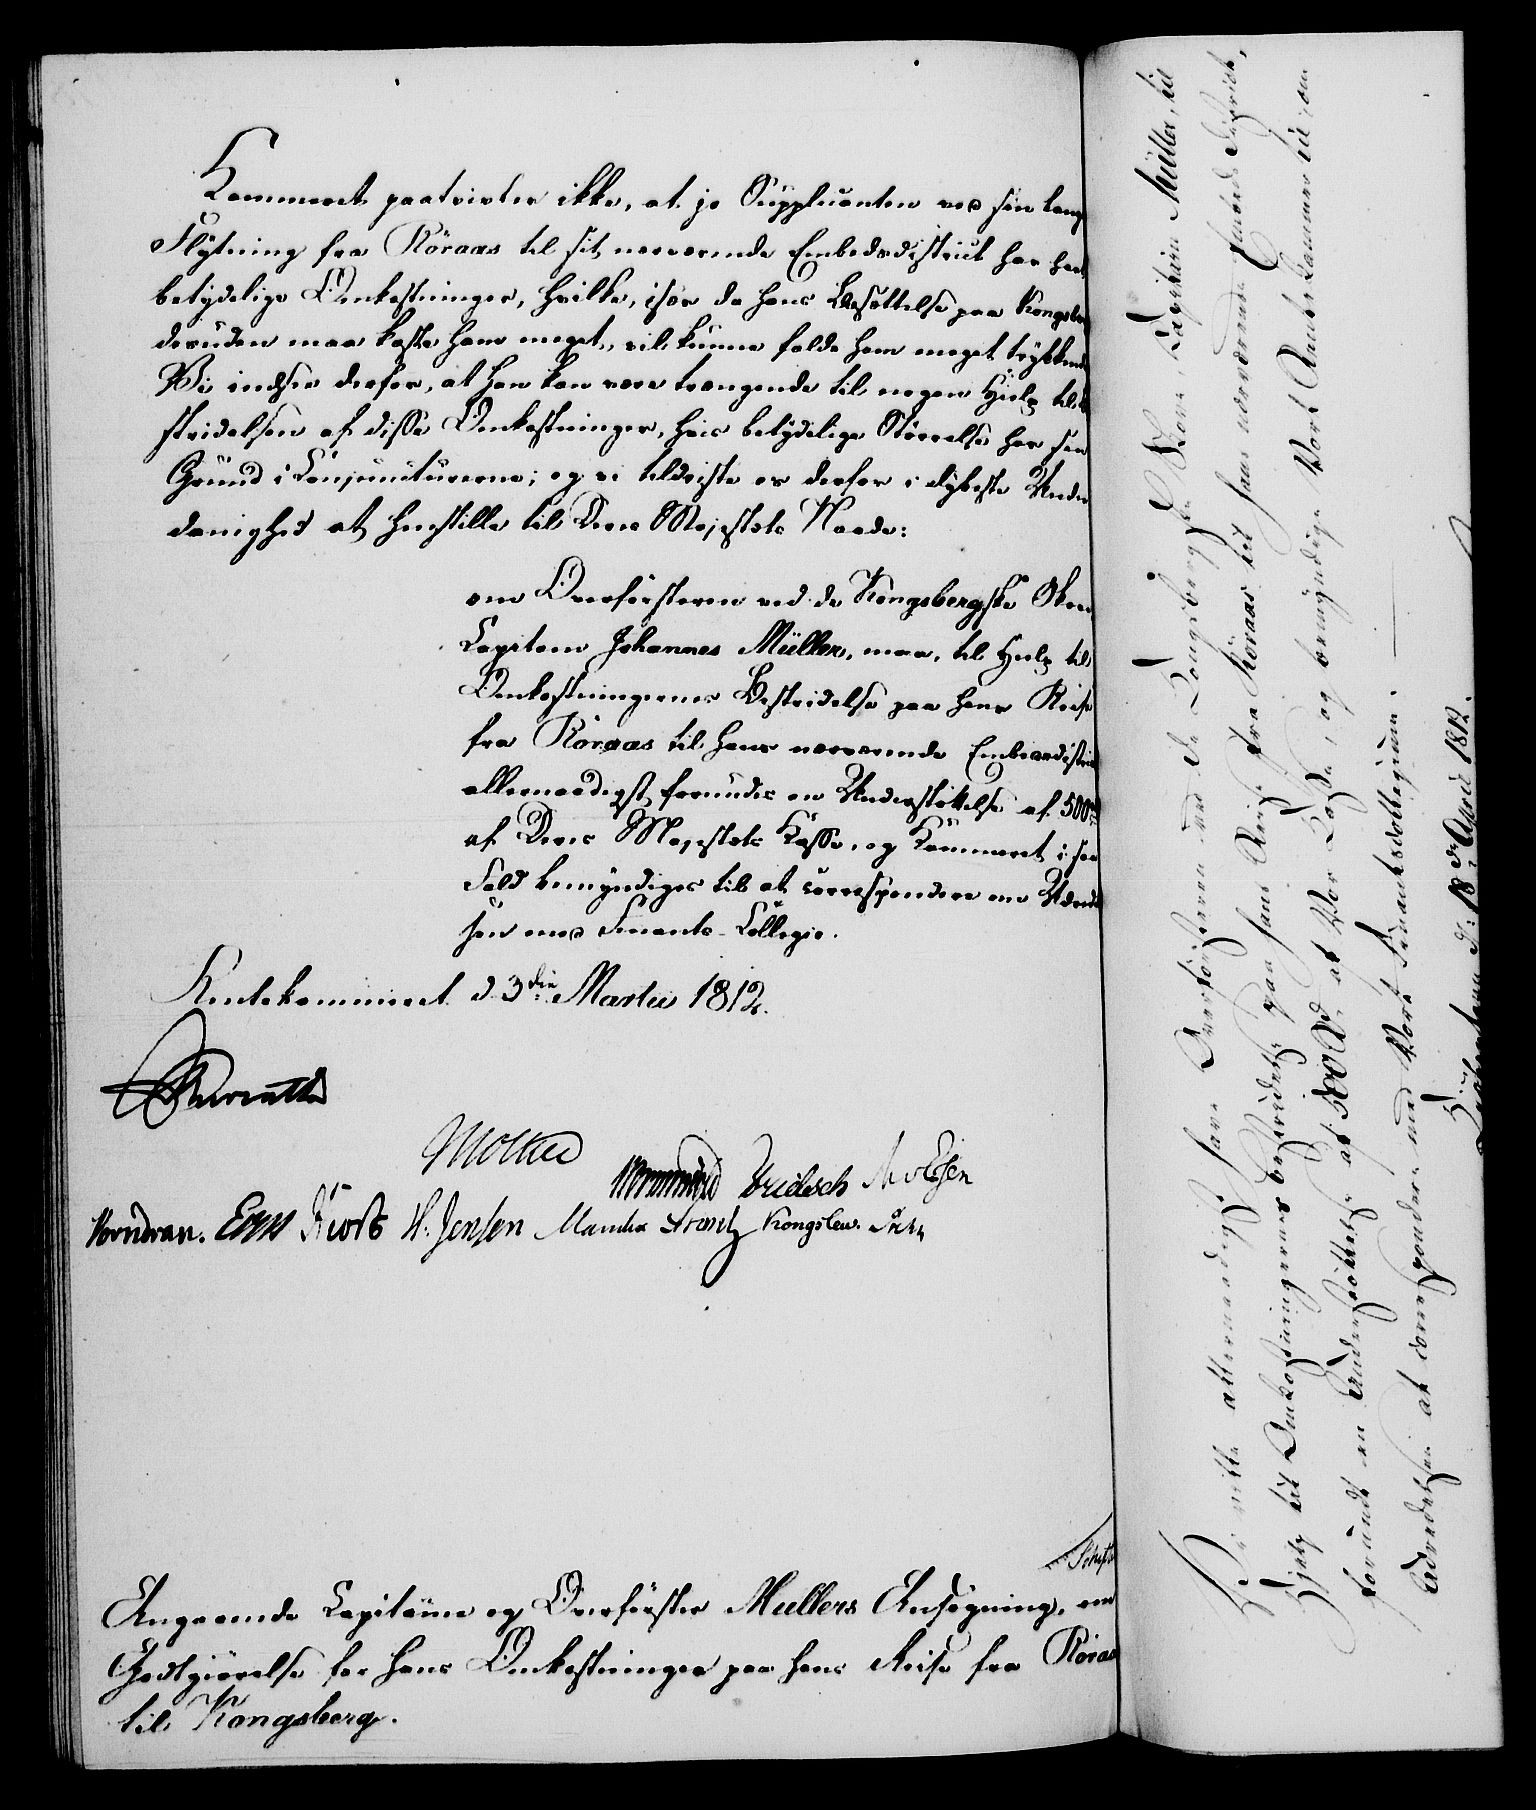 Kammeret paatvivler ikke, at jo Supplicanten ved sin lange
Flytning fra Röraas til sit nærværende Embedsdistrict har havt
betydelige Omkostninger, hvilke, især da hans Besættelse paa Kongsber
desuden maa koste ham meget, vil kunne falde ham meget trykkende
Vi indsee derfor, at han kan være trængende til nogen Hielp til Be
stridelsen af disse Omkostninger, hvis betydelige Størrelse har sin
Grund i Conjuncturerne; og vi tildriste os derfor i dybeste Under
danighed at henstille til Deres Majestæts Naade:
om Overførsteren ved de Kongsbergske Skove
Capitain Johannes Müller, maa, til Hielp til
Omkostningernes Bestridelse paa hans Reise
fra Röraas til hans nærværende Embedsdistrict
allernaadigst forundes en Understøttelse af 500 rd
af Deres Majestæts Kasse, og Kammeret i saa
Fald bemyndiges til at correspondere om Udredel
sen med Finants-Collegie.
Rentekammeret d. 3die Martii 1812.
Moltke
Wormskiold
Vorndran. H. Jensen
Angaaende Capitaine og Overførster Mullers Ansøgning, om
Godtgiørelse for hans Omkostninger paa hans Reise fra Röraas
til Kongsberg.
Vi ville allernaadigst have Overförsteren ved de Kongsbergske Skove, Capitain Müller, til
Hjelp til Omkostningernes Bestridelse paa hans Reise fra Röraas til hans nærværende Embeds District,
forundt en Understöttelse af 500 Rd. af Vor Casse, og bemyndige Vort Rentekammer til, om
Udredelsen at correspondere med Vort Finantscollegium.
d: 18de April 1812.